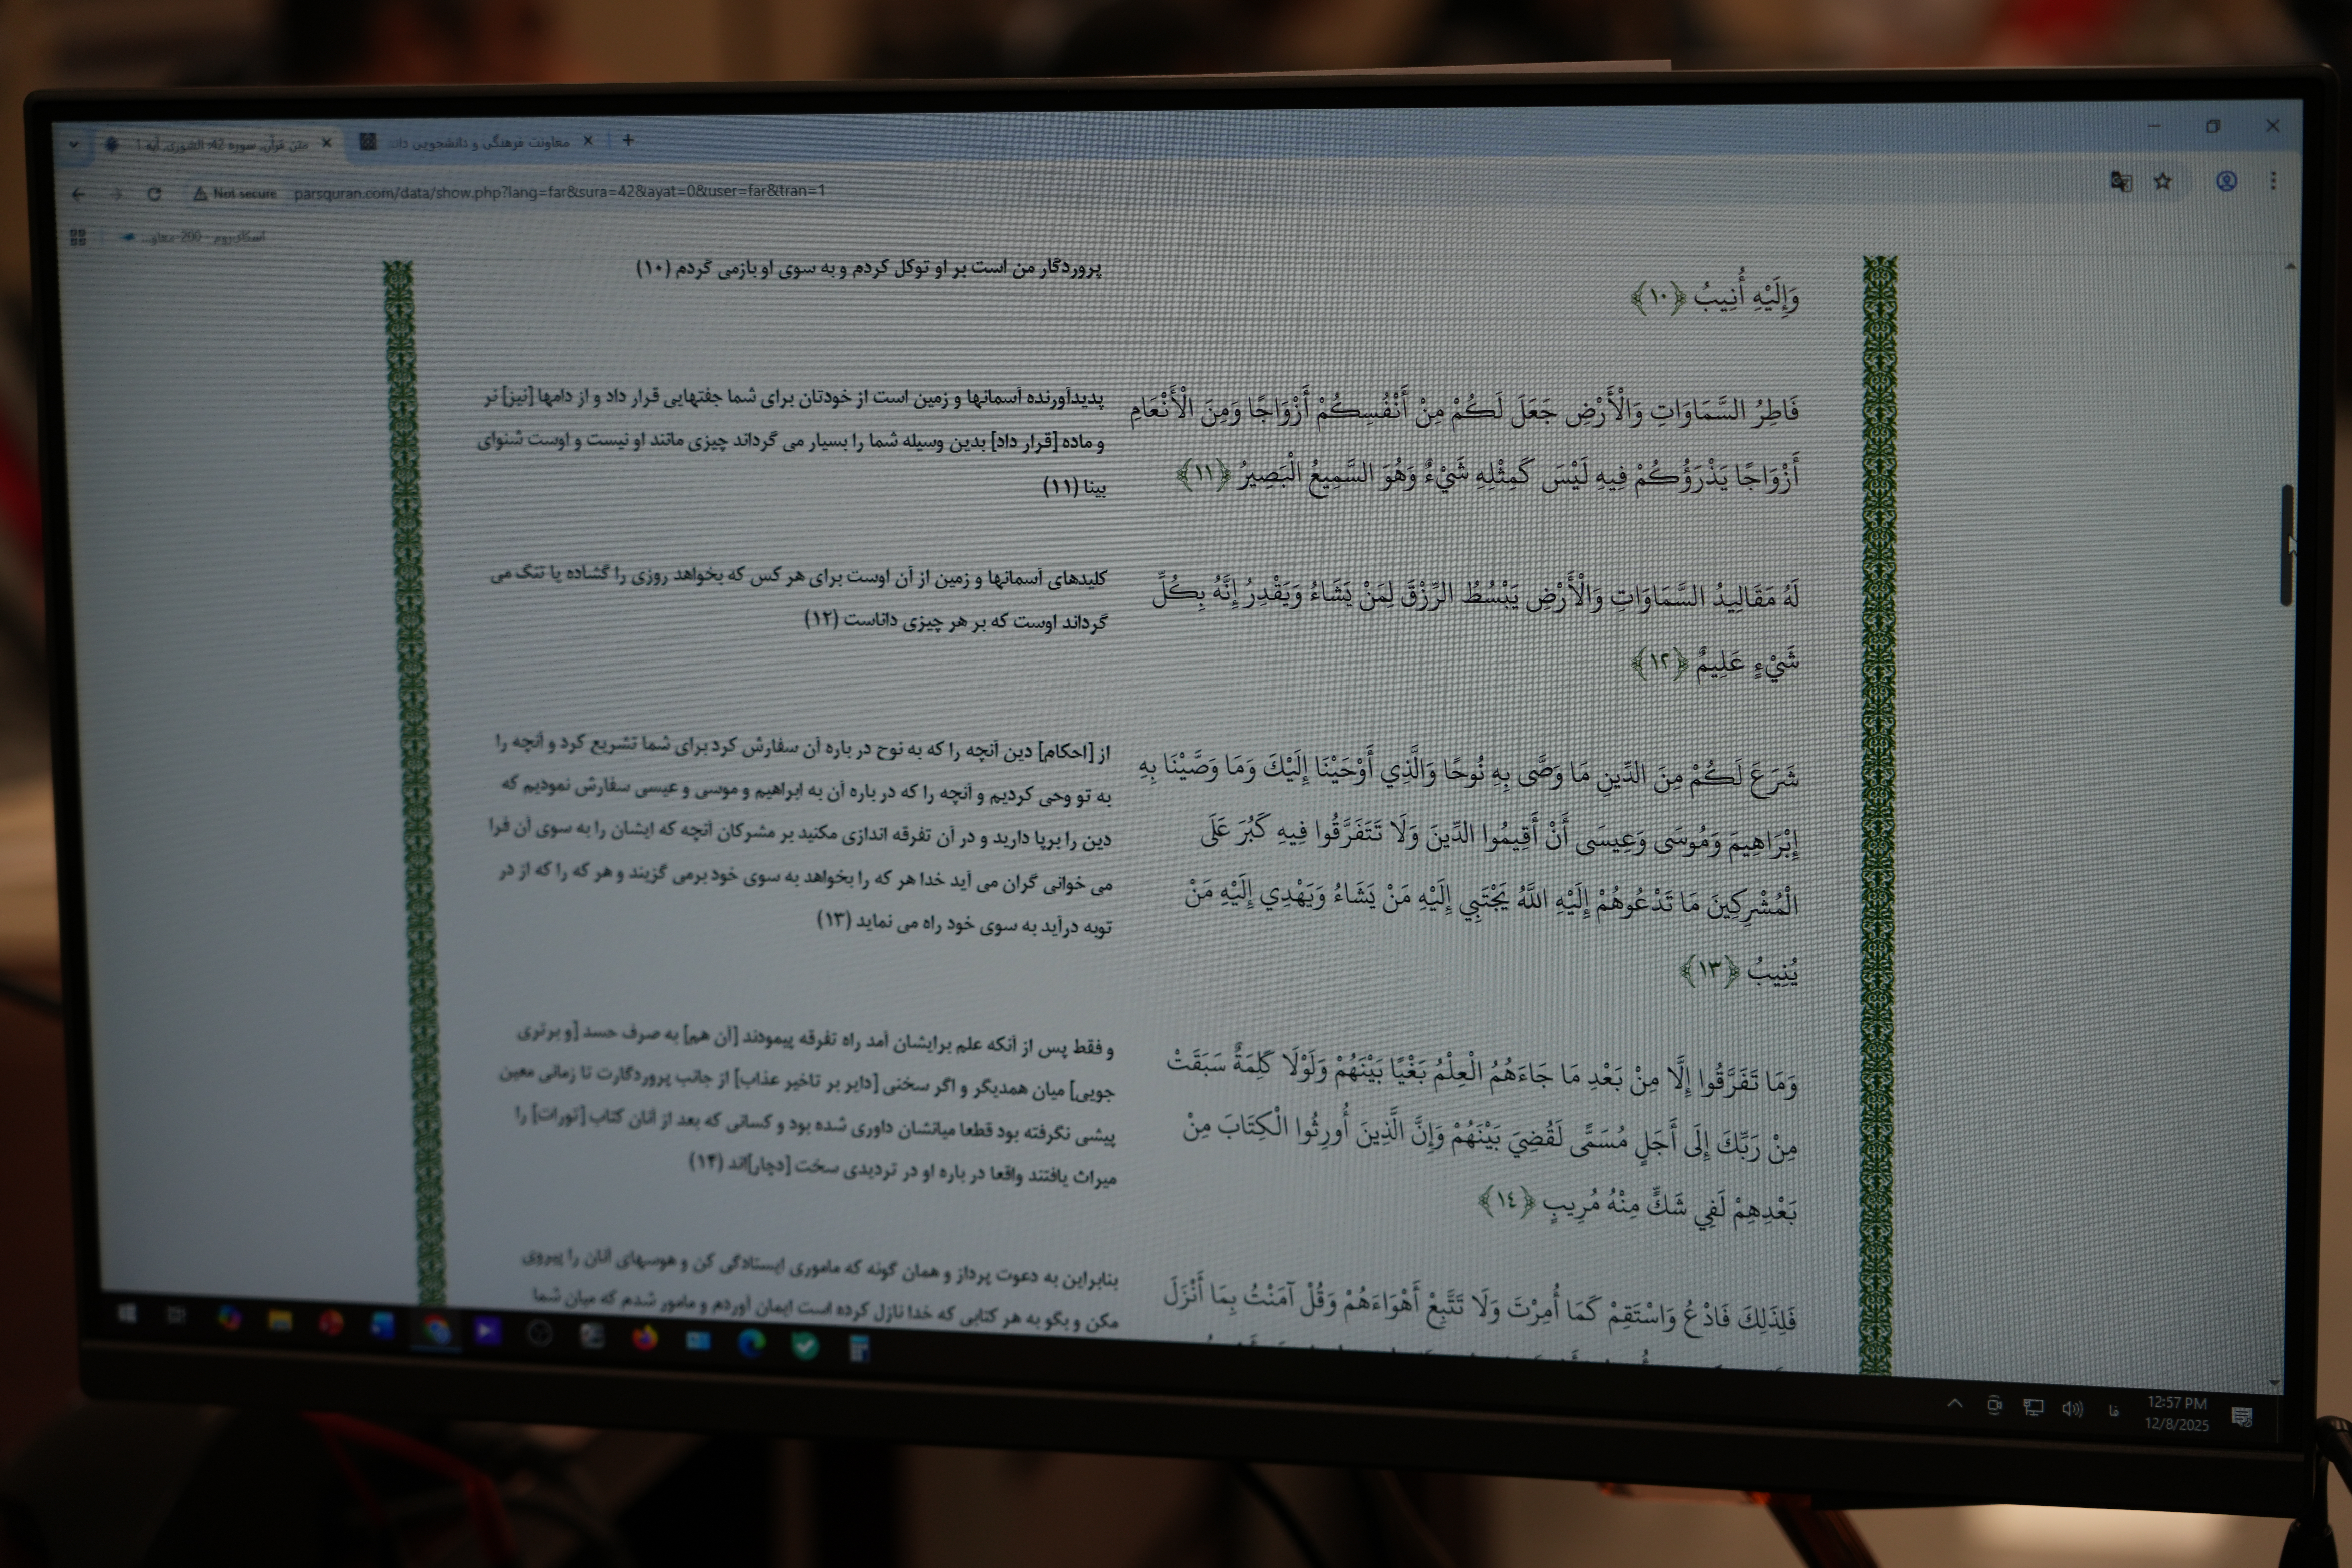 متن قرآن, سوره 42: الشورى, آیه 1
معاونت فرهنگی و دانشجویی دانـ
Not secure
parsquran.com/data/show.php?lang=far&sura=42&ayat=0&user=far&tran=1
اسکای‌روم - 200-معاو...
وَإِلَيْهِ أُنِيبُ ﴿۱۰﴾
پروردگار من است بر او توکل کردم و به سوی او بازمی گردم (۱۰)
فَاطِرُ السَّمَاوَاتِ وَالْأَرْضِ جَعَلَ لَكُمْ مِنْ أَنْفُسِكُمْ أَزْوَاجًا وَمِنَ الْأَنْعَامِ
أَزْوَاجًا يَذْرَؤُكُمْ فِيهِ لَيْسَ كَمِثْلِهِ شَيْءٌ وَهُوَ السَّمِيعُ الْبَصِيرُ ﴿۱۱﴾
پدیدآورنده آسمانها و زمین است از خودتان برای شما جفتهایی قرار داد و از دامها [نیز] نر
و ماده [قرار داد] بدین وسیله شما را بسیار می گرداند چیزی مانند او نیست و اوست شنوای
بینا (۱۱)
لَهُ مَقَالِيدُ السَّمَاوَاتِ وَالْأَرْضِ يَبْسُطُ الرِّزْقَ لِمَنْ يَشَاءُ وَيَقْدِرُ إِنَّهُ بِكُلِّ
شَيْءٍ عَلِيمٌ ﴿۱۲﴾
کلیدهای آسمانها و زمین از آن اوست برای هر کس که بخواهد روزی را گشاده یا تنگ می
گرداند اوست که بر هر چیزی داناست (۱۲)
شَرَعَ لَكُمْ مِنَ الدِّينِ مَا وَصَّى بِهِ نُوحًا وَالَّذِي أَوْحَيْنَا إِلَيْكَ وَمَا وَصَّيْنَا بِهِ
إِبْرَاهِيمَ وَمُوسَى وَعِيسَى أَنْ أَقِيمُوا الدِّينَ وَلَا تَتَفَرَّقُوا فِيهِ كَبُرَ عَلَى
الْمُشْرِكِينَ مَا تَدْعُوهُمْ إِلَيْهِ اللَّهُ يَجْتَبِي إِلَيْهِ مَنْ يَشَاءُ وَيَهْدِي إِلَيْهِ مَنْ
يُنِيبُ ﴿۱۳﴾
از [احکام] دین آنچه را که به نوح در باره آن سفارش کرد برای شما تشریع کرد و آنچه را
به تو وحی کردیم و آنچه را که در باره آن به ابراهیم و موسی و عیسی سفارش نمودیم که
دین را برپا دارید و در آن تفرقه اندازی مکنید بر مشرکان آنچه که ایشان را به سوی آن فرا
می خوانی گران می آید خدا هر که را بخواهد به سوی خود برمی گزیند و هر که را که از در
توبه درآید به سوی خود راه می نماید (۱۳)
وَمَا تَفَرَّقُوا إِلَّا مِنْ بَعْدِ مَا جَاءَهُمُ الْعِلْمُ بَغْيًا بَيْنَهُمْ وَلَوْلَا كَلِمَةٌ سَبَقَتْ
مِنْ رَبِّكَ إِلَى أَجَلٍ مُسَمًّى لَقُضِيَ بَيْنَهُمْ وَإِنَّ الَّذِينَ أُورِثُوا الْكِتَابَ مِنْ
بَعْدِهِمْ لَفِي شَكٍّ مِنْهُ مُرِيبٍ ﴿۱٤﴾
و فقط پس از آنکه علم برایشان آمد راه تفرقه پیمودند [آن هم] به صرف حسد [و برتری
جویی] میان همدیگر و اگر سخنی [دایر بر تاخیر عذاب] از جانب پروردگارت تا زمانی معین
پیشی نگرفته بود قطعا میانشان داوری شده بود و کسانی که بعد از آنان کتاب [تورات] را
میراث یافتند واقعا در باره او در تردیدی سخت [دچار]اند (۱۴)
فَلِذَلِكَ فَادْعُ وَاسْتَقِمْ كَمَا أُمِرْتَ وَلَا تَتَّبِعْ أَهْوَاءَهُمْ وَقُلْ آمَنْتُ بِمَا أَنْزَلَ
بنابراین به دعوت پرداز و همان گونه که ماموری ایستادگی کن و هوسهای آنان را پیروی
مکن و بگو به هر کتابی که خدا نازل کرده است ایمان آوردم و مامور شدم که میان شما
فا
12:57 PM
12/8/2025